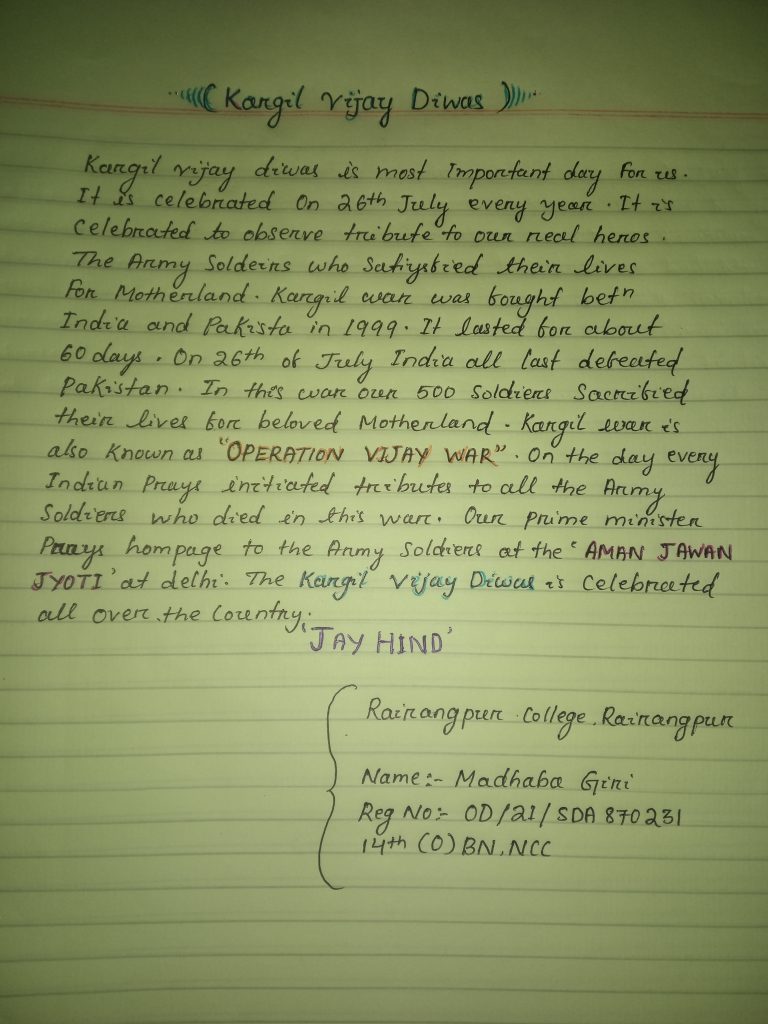 Kargil Vijay Diwas
Kargil vijay diwas is most Important day For us.
It is celebrated On 26th July every year. It is
Celebrated to observe tribute to our real heros.
The Army Soldeirs who Satiysfied their lives
For Motherland. Kargil war was fought betn
India and Pakista in 1999. It lasted for about
60 days. On 26th of July India all last defeated
Pakistan. In this war our 500 Soldiers Sacrified
their lives for beloved Motherland. Kargil war is
also Known as "OPERATION VIJAY WAR". On the day every
Indian Prays initiated tributes to all the Army
Soldiers who died in this war. Our Prime minister
Prays hompage to the Army Soldiers at the 'AMAN JAWAN
JYOTI' at delhi. The Kargil Vijay Diwas is Celebrated
all over.the Country.
'JAY HIND'
Rairangpur College, Rairangpur
Name:- Madhaba Giri
Reg No:- OD/21/SDA 870231
14th (O) BN, NCC